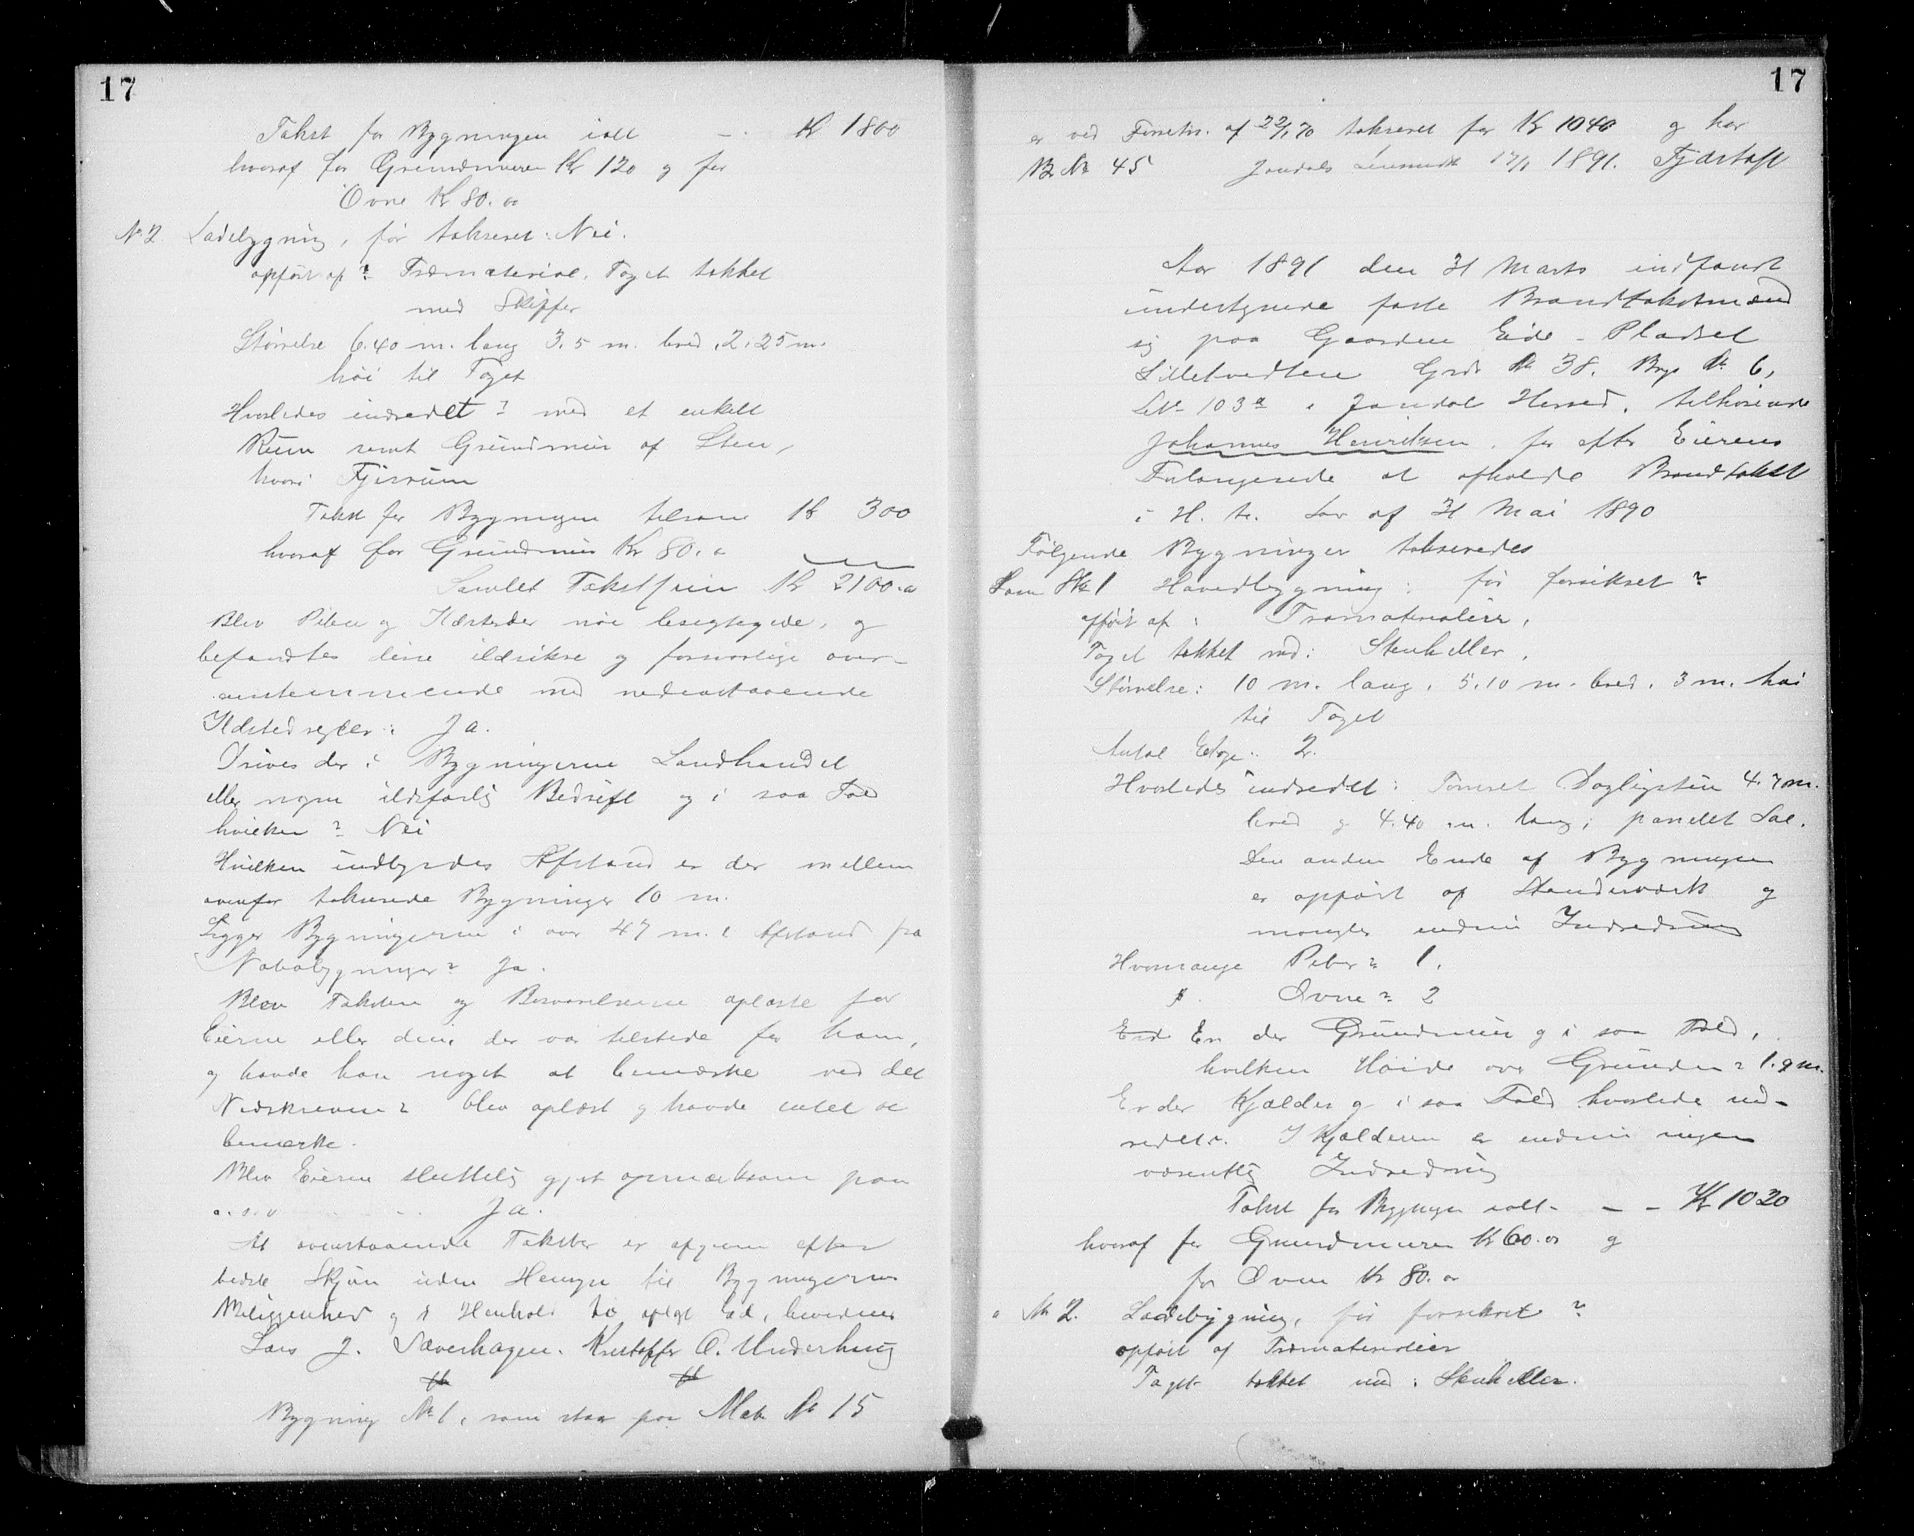 17
Takst for Bygningen ialt — . Kr 1800
hvoraf for Grundmuren Kr 120 og for
Ovne Kr 80.00
No 2 Ladebygning, før takseret: Nei.
opført af? Træmateriale. Taget tækket
med Skiffer
Størrelse 6.40 m. lang 3.5 m. bred, 2.25 m.
høi til Taget
Hvorledes indredet? med et enkelt
Rum samt Grundmur af Sten,
hvori Fjøsrum
Takst for Bygningen tilsam Kr 300
hvoraf for Grundmur Kr 80.00
Samlet Takstsum Kr 2100.00
Blev Piben og Ildsteder nøie besigtigede, og
befandtes disse ildsikre og forsvarlige over-
ensstemmende med nedenstaaende
Ildstedregler: Ja.
Drives der i Bygningerne Landhandel
eller nogen ildsfarlig Bedrift og i saa Fald
hvilken? Nei
Hvilken indbyrdes Afstand er der mellem
ovenfor takserede Bygninger 10 m.
Ligger Bygningerne i over 47 m.s Afstand fra
Nabobygninger? Ja.
Blev Taksten og Besvarelserne oplæste for
Eieren eller den, der var tilstede for ham,
og havde han noget at bemærke ved det
Nedskrevne? blev oplæst og havde intet at
bemærke.
Blev Eieren sluttelig gjort opmærksom paa
o.s.v. Ja.
At ovenstaaende Takster er afgivne efter
bedste Skjøn uden Hensyn til Bygningernes
Beliggenhed og i Henhold til aflagt Ed, bevidnes
Lars J. Sæverhagen. Kristoffer O. Underhaug
Bygning No 1, som staar paa Mat No 15
17
er ved Forretn. af 22/1 70 takseret for Kr 1040 og har
Br No 45 Jondals Lensmd 17/1 1891. Fjærtoft
Aar 1891 den 31 Marts indfandt
undertegnede faste Brandtakstmænd
sig paa Gaarden Eide - Pladset
Lilletvedten Grds No 38. Brgs No 6,
LNo 103a i Jondal Herred, tilhørende
Johannes Henriksen, for efter Eierens
Forlangende at afholde Brandtakst
i H. t. Lov af 31 Mai 1890
Følgende Bygninger takseredes
Som No 1 Hovedbygning: før forsikret?
opført af: Træmaterialier.
Taget tækket med: Stenheller.
Størrelse: 10 m. lang, 5.10 m. bred. 3 m. høi
til Taget
Antal Etage: 2.
Hvorledes indredet: Tømret Dagligstue 4.7 m.
bred og 4.40 m. lang; panelet Sal.
Den anden Ende af Bygningen
er opført af Stenderværk og
mangler endnu Indredning
Hvormange Piber? 1.
Ovne? 2
Er der Grundmur og i saa Fald,
hvilken Høide over Grunden? 1.9 m.
Er der Kjælder og i saa Fald hvorledes ind-
redet? I Kjælderen er endnu ingen
væsentlig Indredning
Takst for Bygningen ialt - — - Kr 1020
hvoraf for Grundmuren Kr 60.00 og
for Ovne Kr 80.00
No 2. Ladebygning, før forsikret?
opført af Træmaterialier
Taget tækket med: Stenheller.